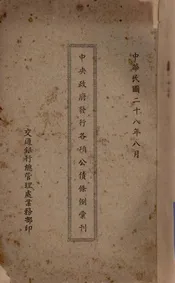 中華民國二十八年八月
中央政府發行各項公債條例彙刊
交通銀行總管理處業務部印